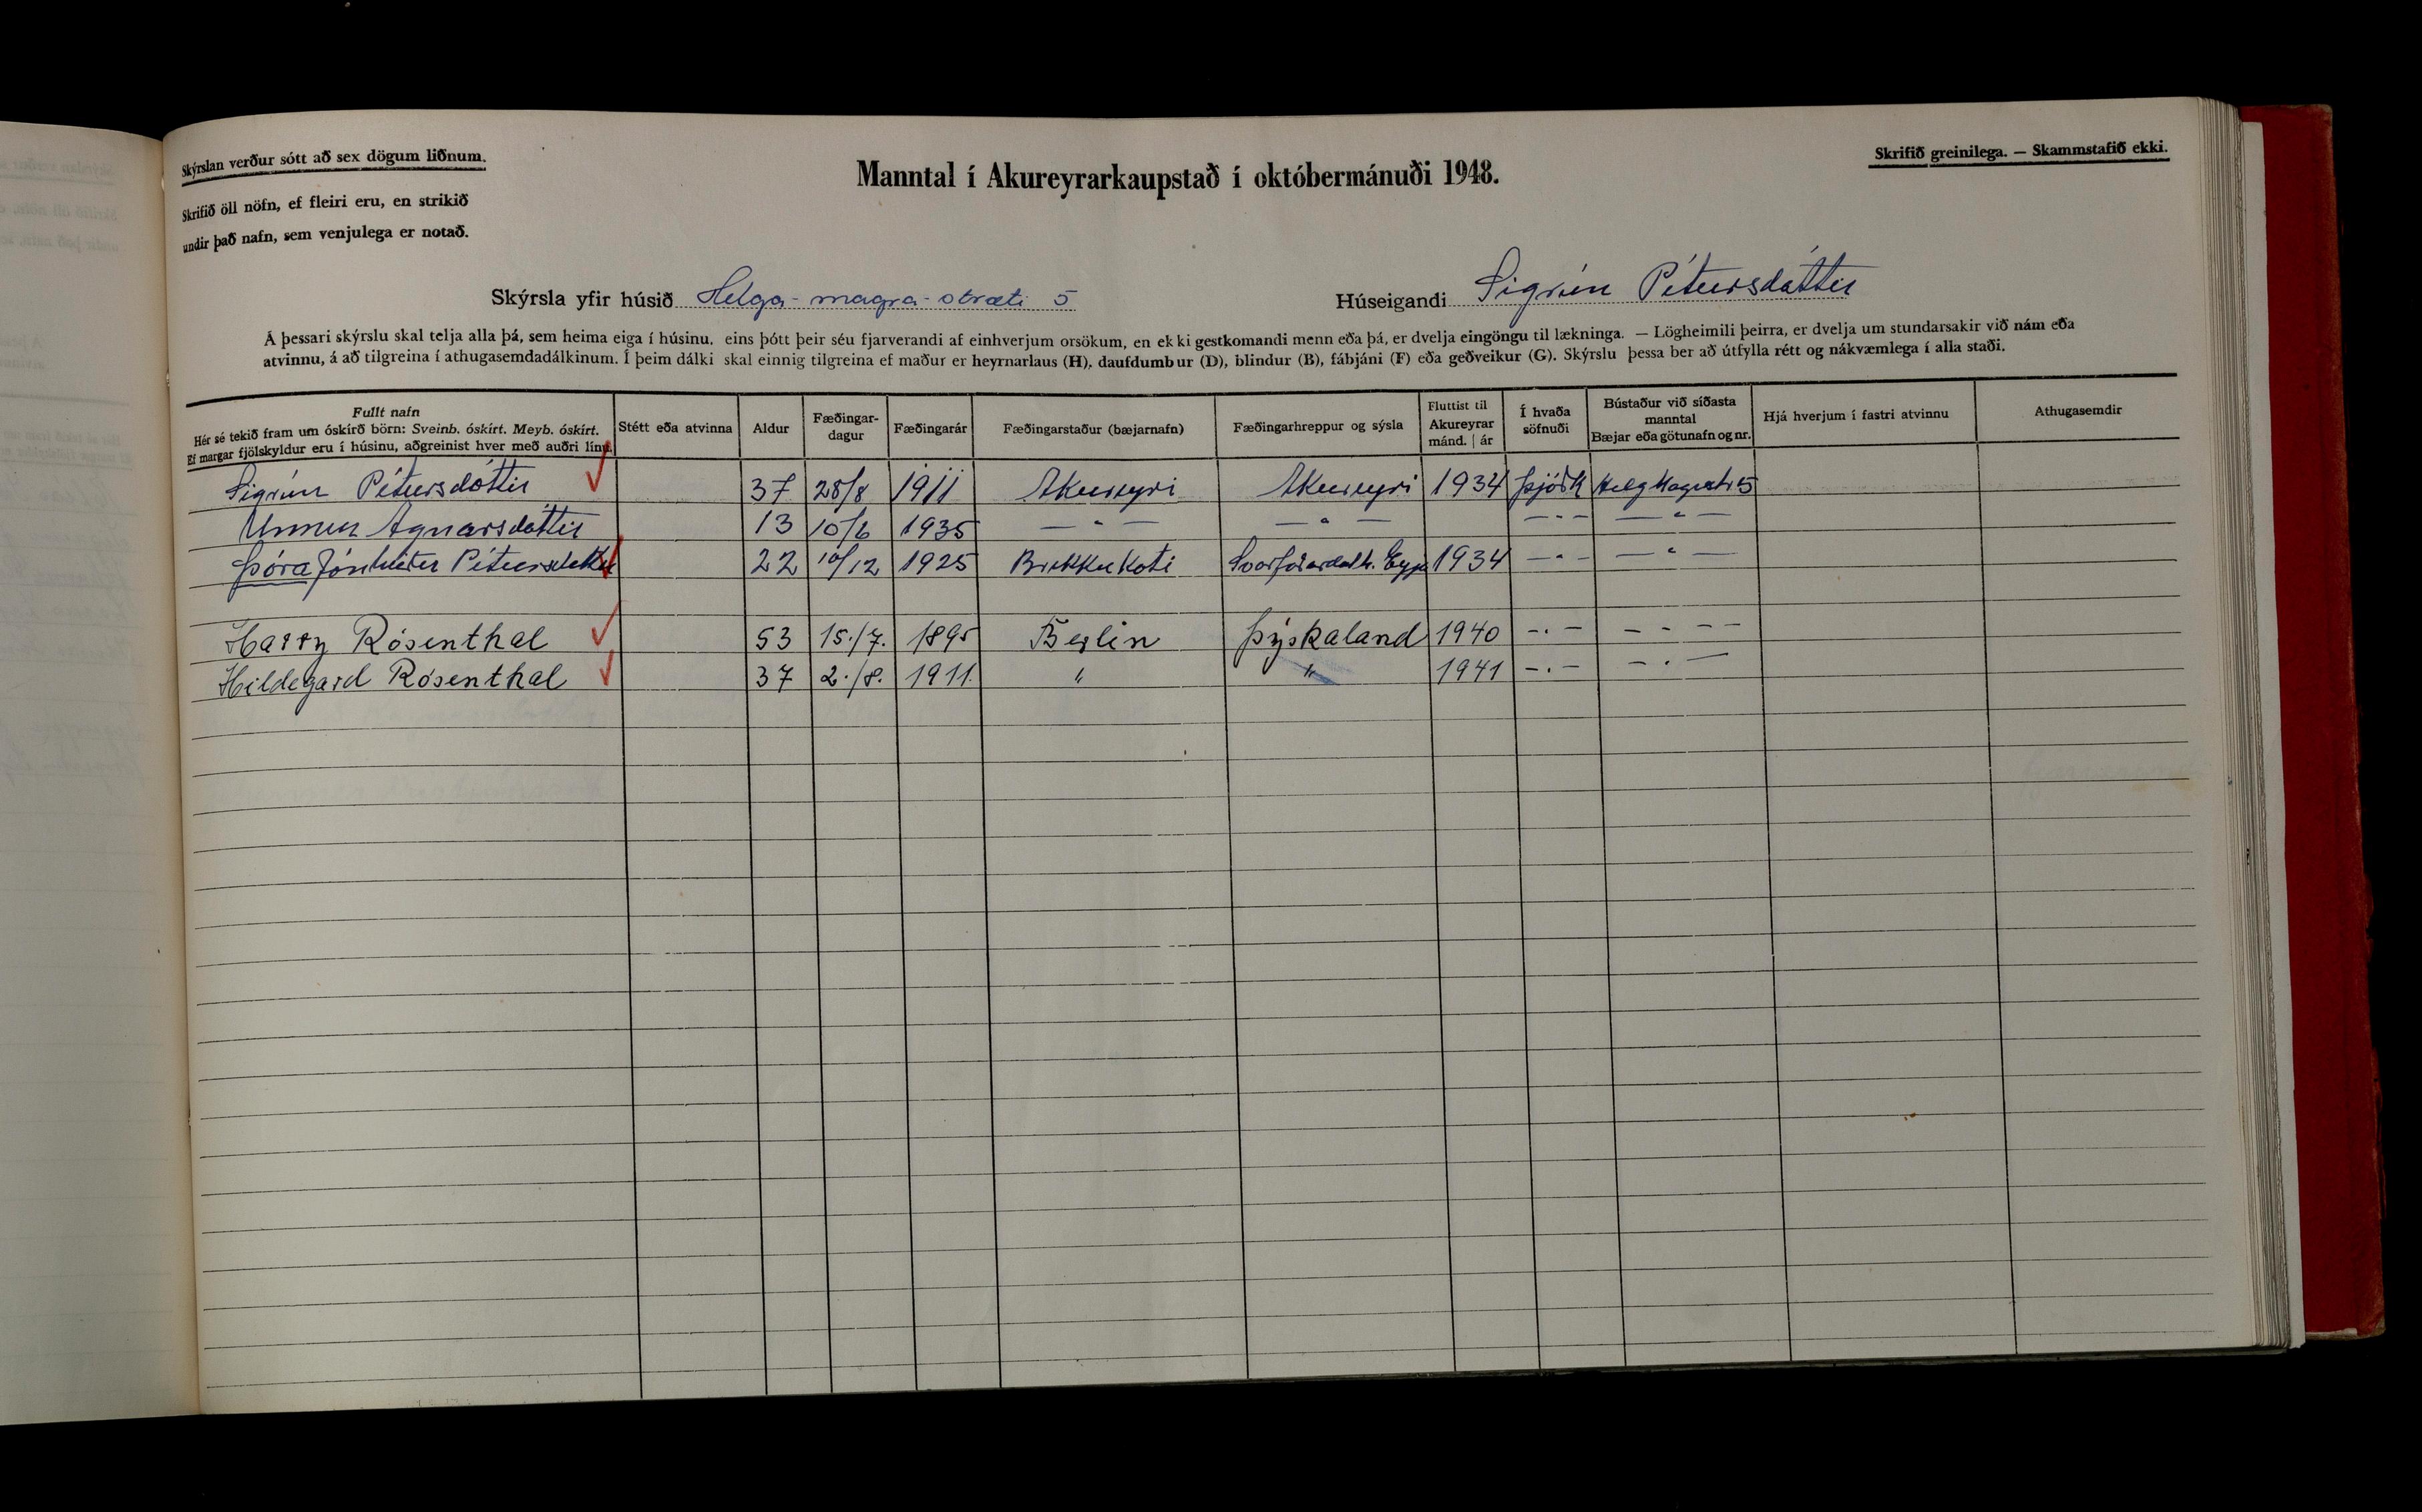 Skýrslan verður sótt að sex dögum liðnum.
Skrifið öll nöfn, ef fleiri eru, en strikið
undir það nafn, sem venjulega er notað.
Manntal í Akureyrarkaupstað í októbermánuði 1948.
Skrifið greinilega. — Skammstafið ekki.
Skýrsla yfir húsið Helga-magra-stræti 5
Húseigandi Sigrún Pétursdóttir
Á þessari skýrslu skal telja alla þá, sem heima eiga í húsinu, eins þótt þeir séu fjarverandi af einhverjum orsökum, en ekki gestkomandi menn eða þá, er dvelja eingöngu til lækninga. — Lögheimili þeirra, er dvelja um stundarsakir við nám eða
atvinnu, á að tilgreina í athugasemdadálkinum. Í þeim dálki skal einnig tilgreina ef maður er heyrnarlaus (H), daufdumbur (D), blindur (B), fábjáni (F) eða geðveikur (G). Skýrslu þessa ber að útfylla rétt og nákvæmlega í alla staði.
Fullt nafn
Hér sé tekið fram um óskírð börn: Sveinb. óskírt. Meyb. óskírt.
Ef margar fjölskyldur eru í húsinu, aðgreinist hver með auðri línu.
Stétt eða atvinna
Aldur
Fæðingar-
dagur
Fæðingarár
Fæðingarstaður (bæjarnafn)
Fæðingarhreppur og sýsla
Fluttist til
Akureyrar
mánd. | ár
Í hvaða
söfnuði
Bústaður við síðasta
manntal
Bæjar eða götunafn og nr.
Hjá hverjum í fastri atvinnu
Athugasemdir
Sigrún Pétursdóttir 37 28/8 1911 Akureyri Akureyri 1934 Þjóðk Helg Magrastr 5
Unnur Agnarsdóttir 13 10/6 1935 — " — — " — — " — — " —
Þóra Pétursdóttir 22 10/12 1925 Brekkukoti Svarfaðardalh. Eyj 1934 — " — — " —
Harry Rósenthal 53 15./7. 1895 Berlin Þýskaland 1940 — . — — - — —
Hildegard Rósenthal 37 2./8. 1911. " " 1941 — . — — . —